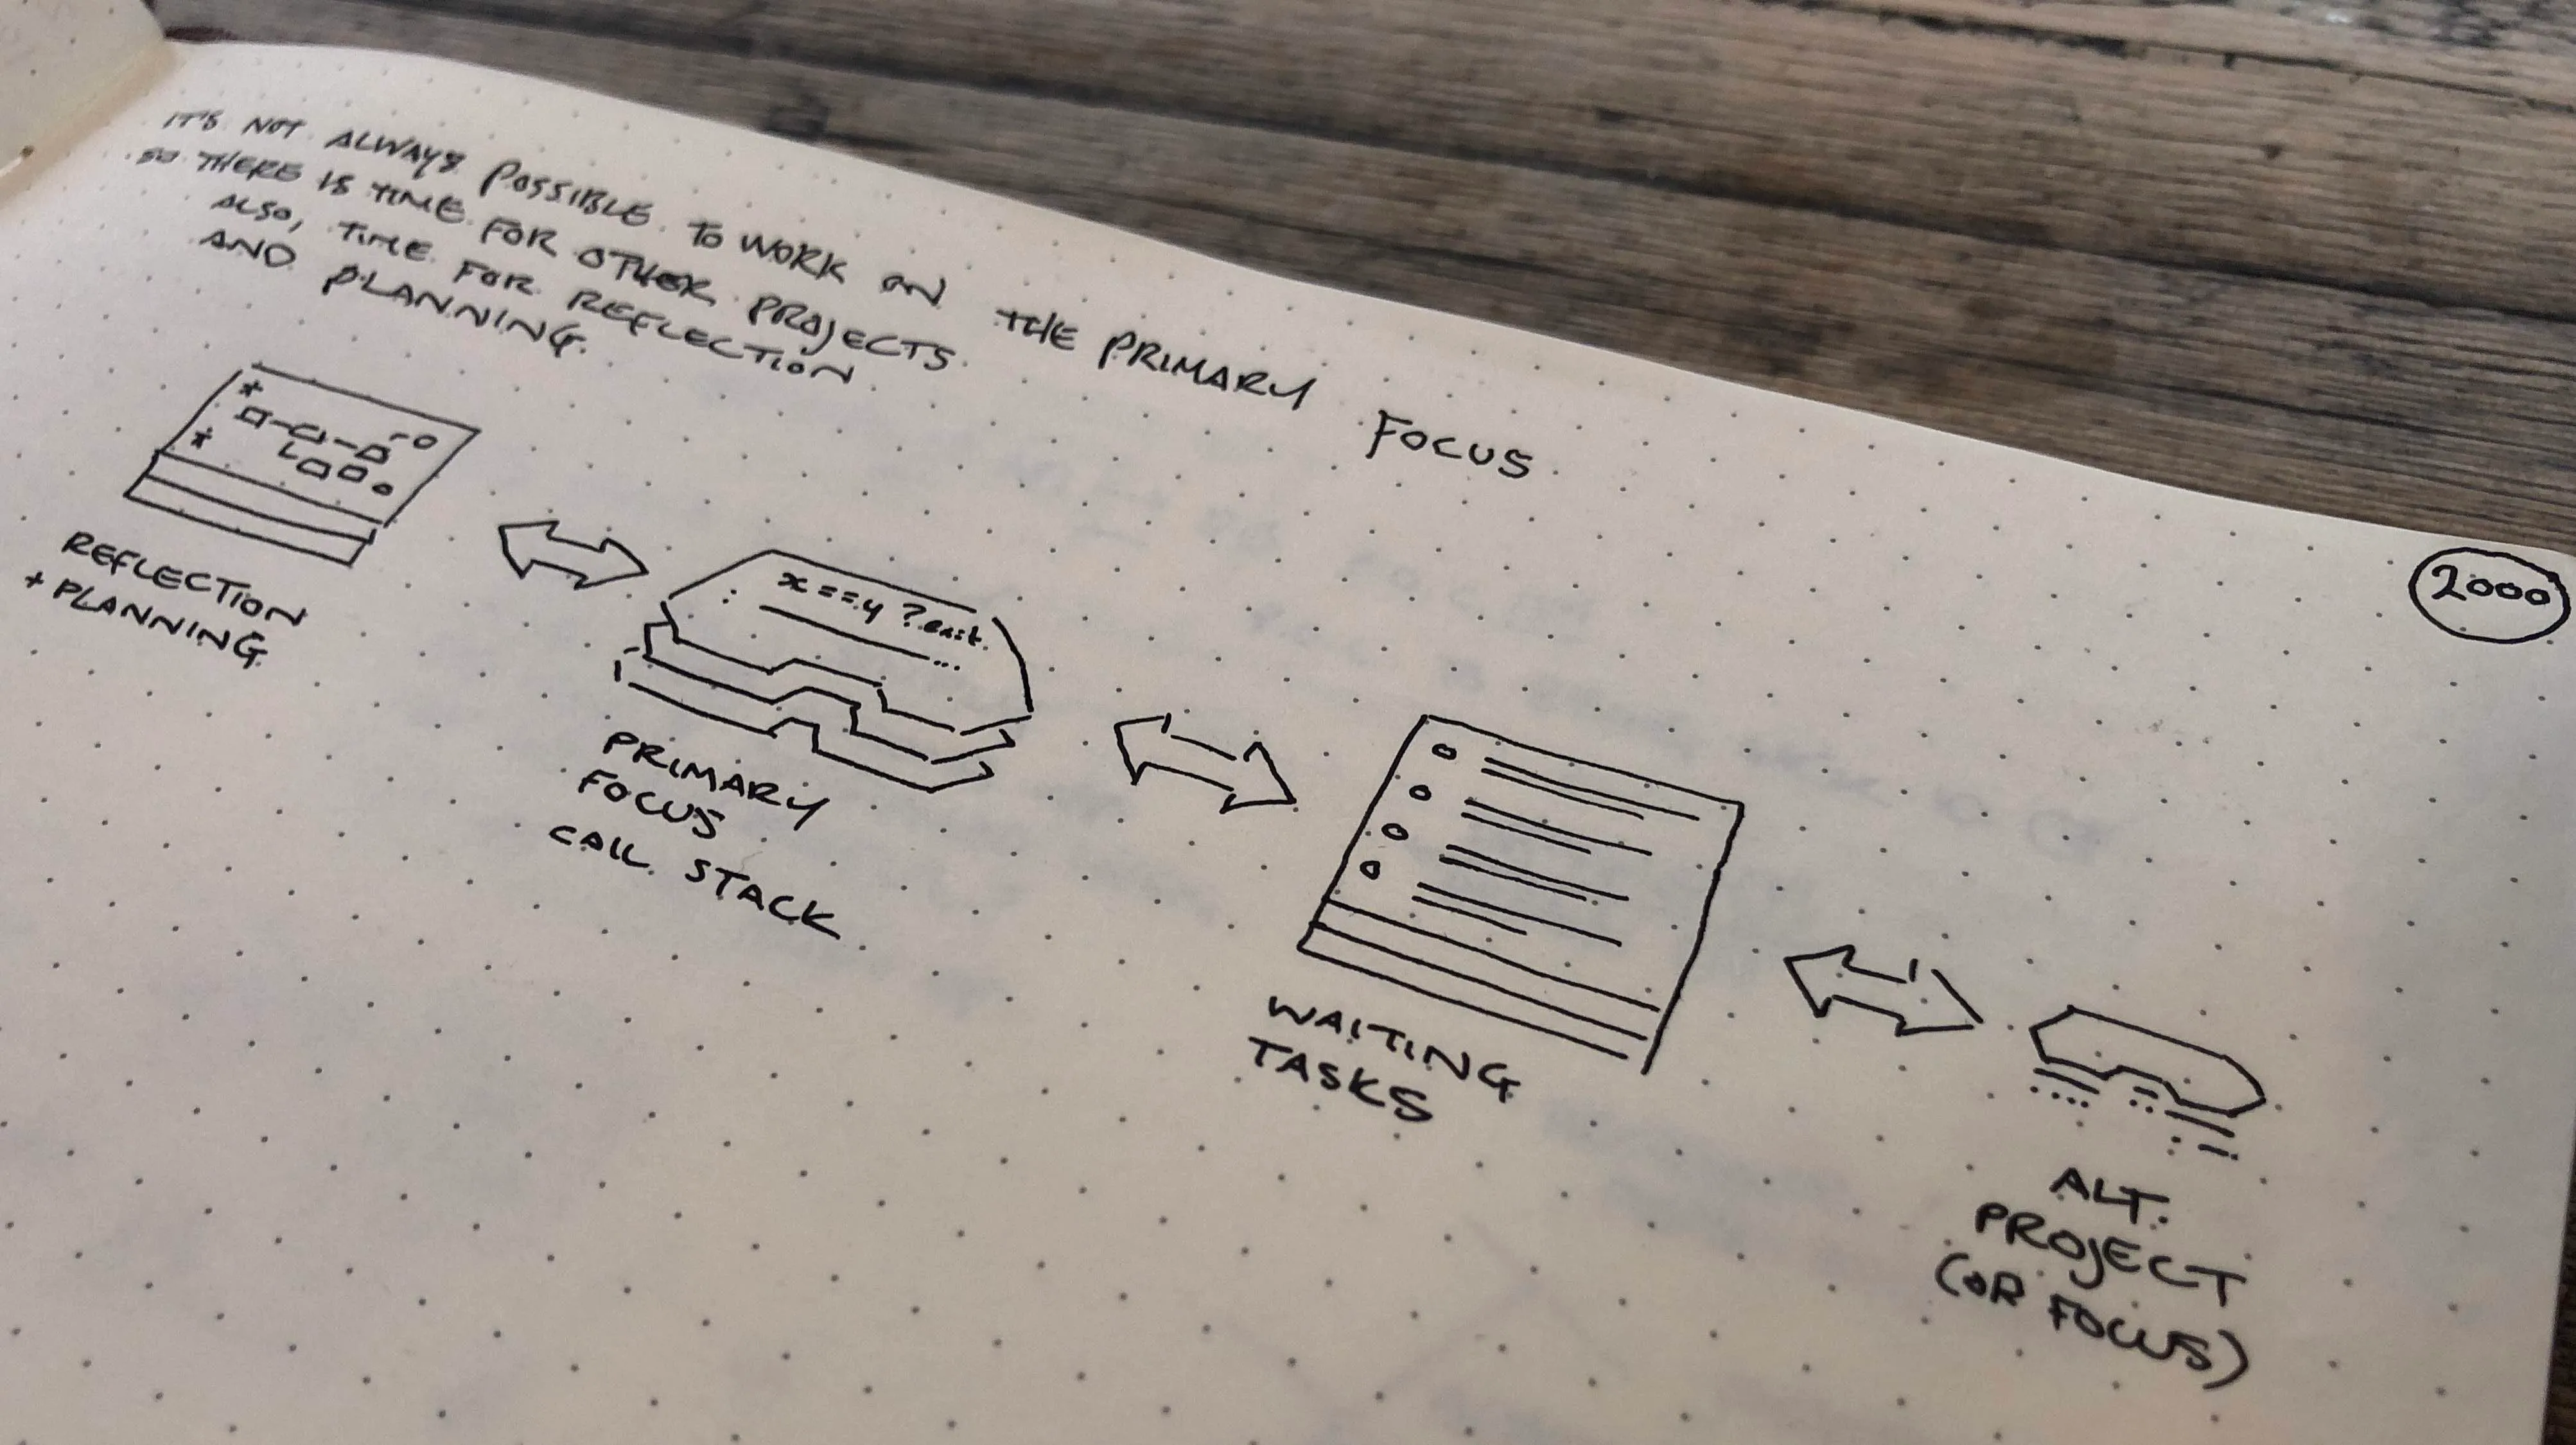 IT'S NOT ALWAYS POSSIBLE TO WORK ON THE PRIMARY FOCUS
SO THERE IS TIME FOR OTHER PROJECTS.
ALSO, TIME FOR REFLECTION
AND PLANNING.
2000
x==y ? exit.
: ...
REFLECTION
+ PLANNING
PRIMARY
FOCUS
CALL STACK
WAITING
TASKS
ALT.
PROJECT
(OR FOCUS)